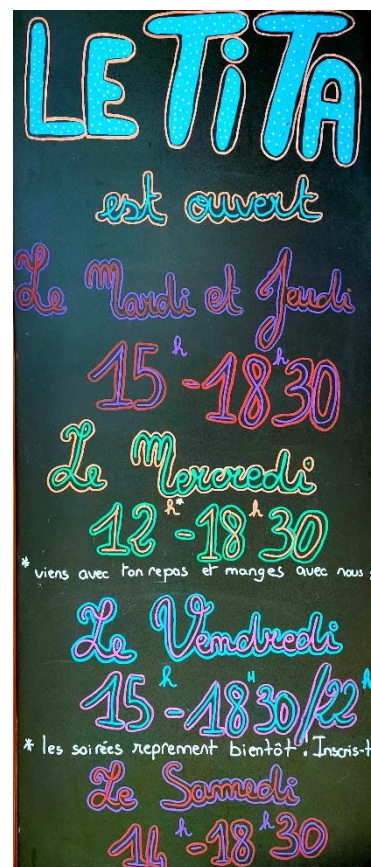 LE TiTA
est ouvert
Le Mardi et Jeudi
15h-18h30
Le Mercredi
12h*-18h30
* viens avec ton repas et manges avec nous
Le Vendredi
15h-18H30/22h
* les soirées reprennent bientôt! Inscris-t
Le Samedi
14h-18h30